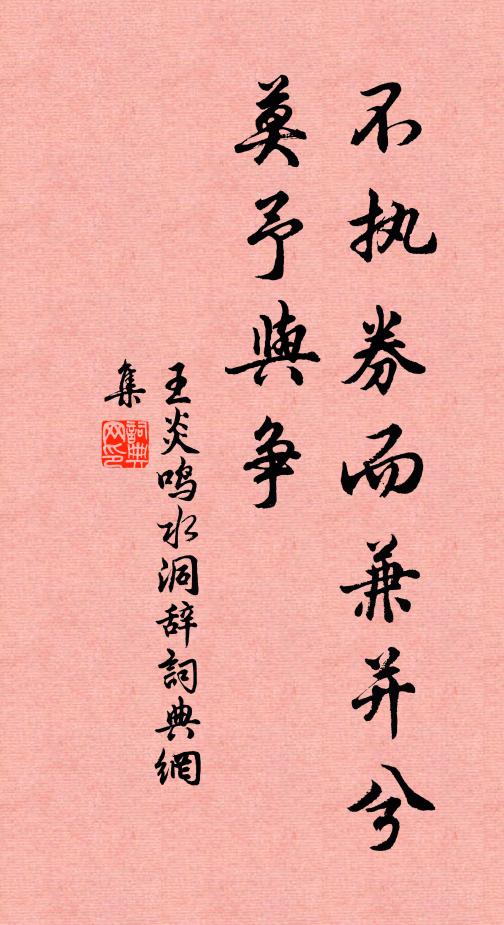 不执券而兼并兮
莫予與争
王炎鸣水洞辞詞典網
集
詞典
网印